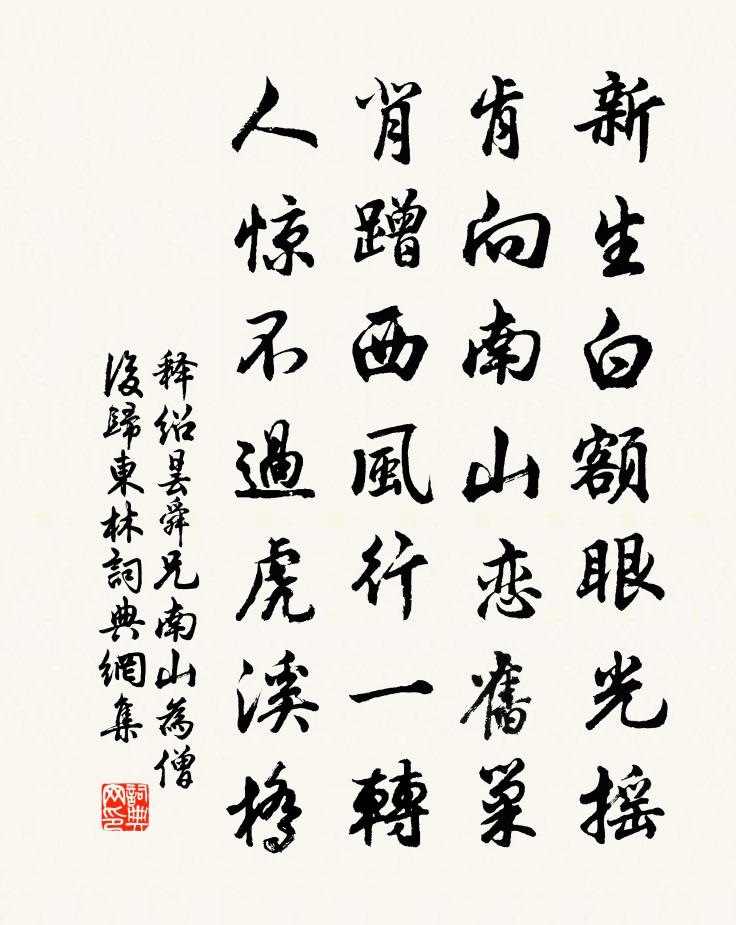 新生白額眼光摇
肯向南山恋舊巢
背蹭西風行一轉
人惊不過虎溪橋
释绍昙舜兄南山為僧
後歸東林詞典網集
詞典
网印